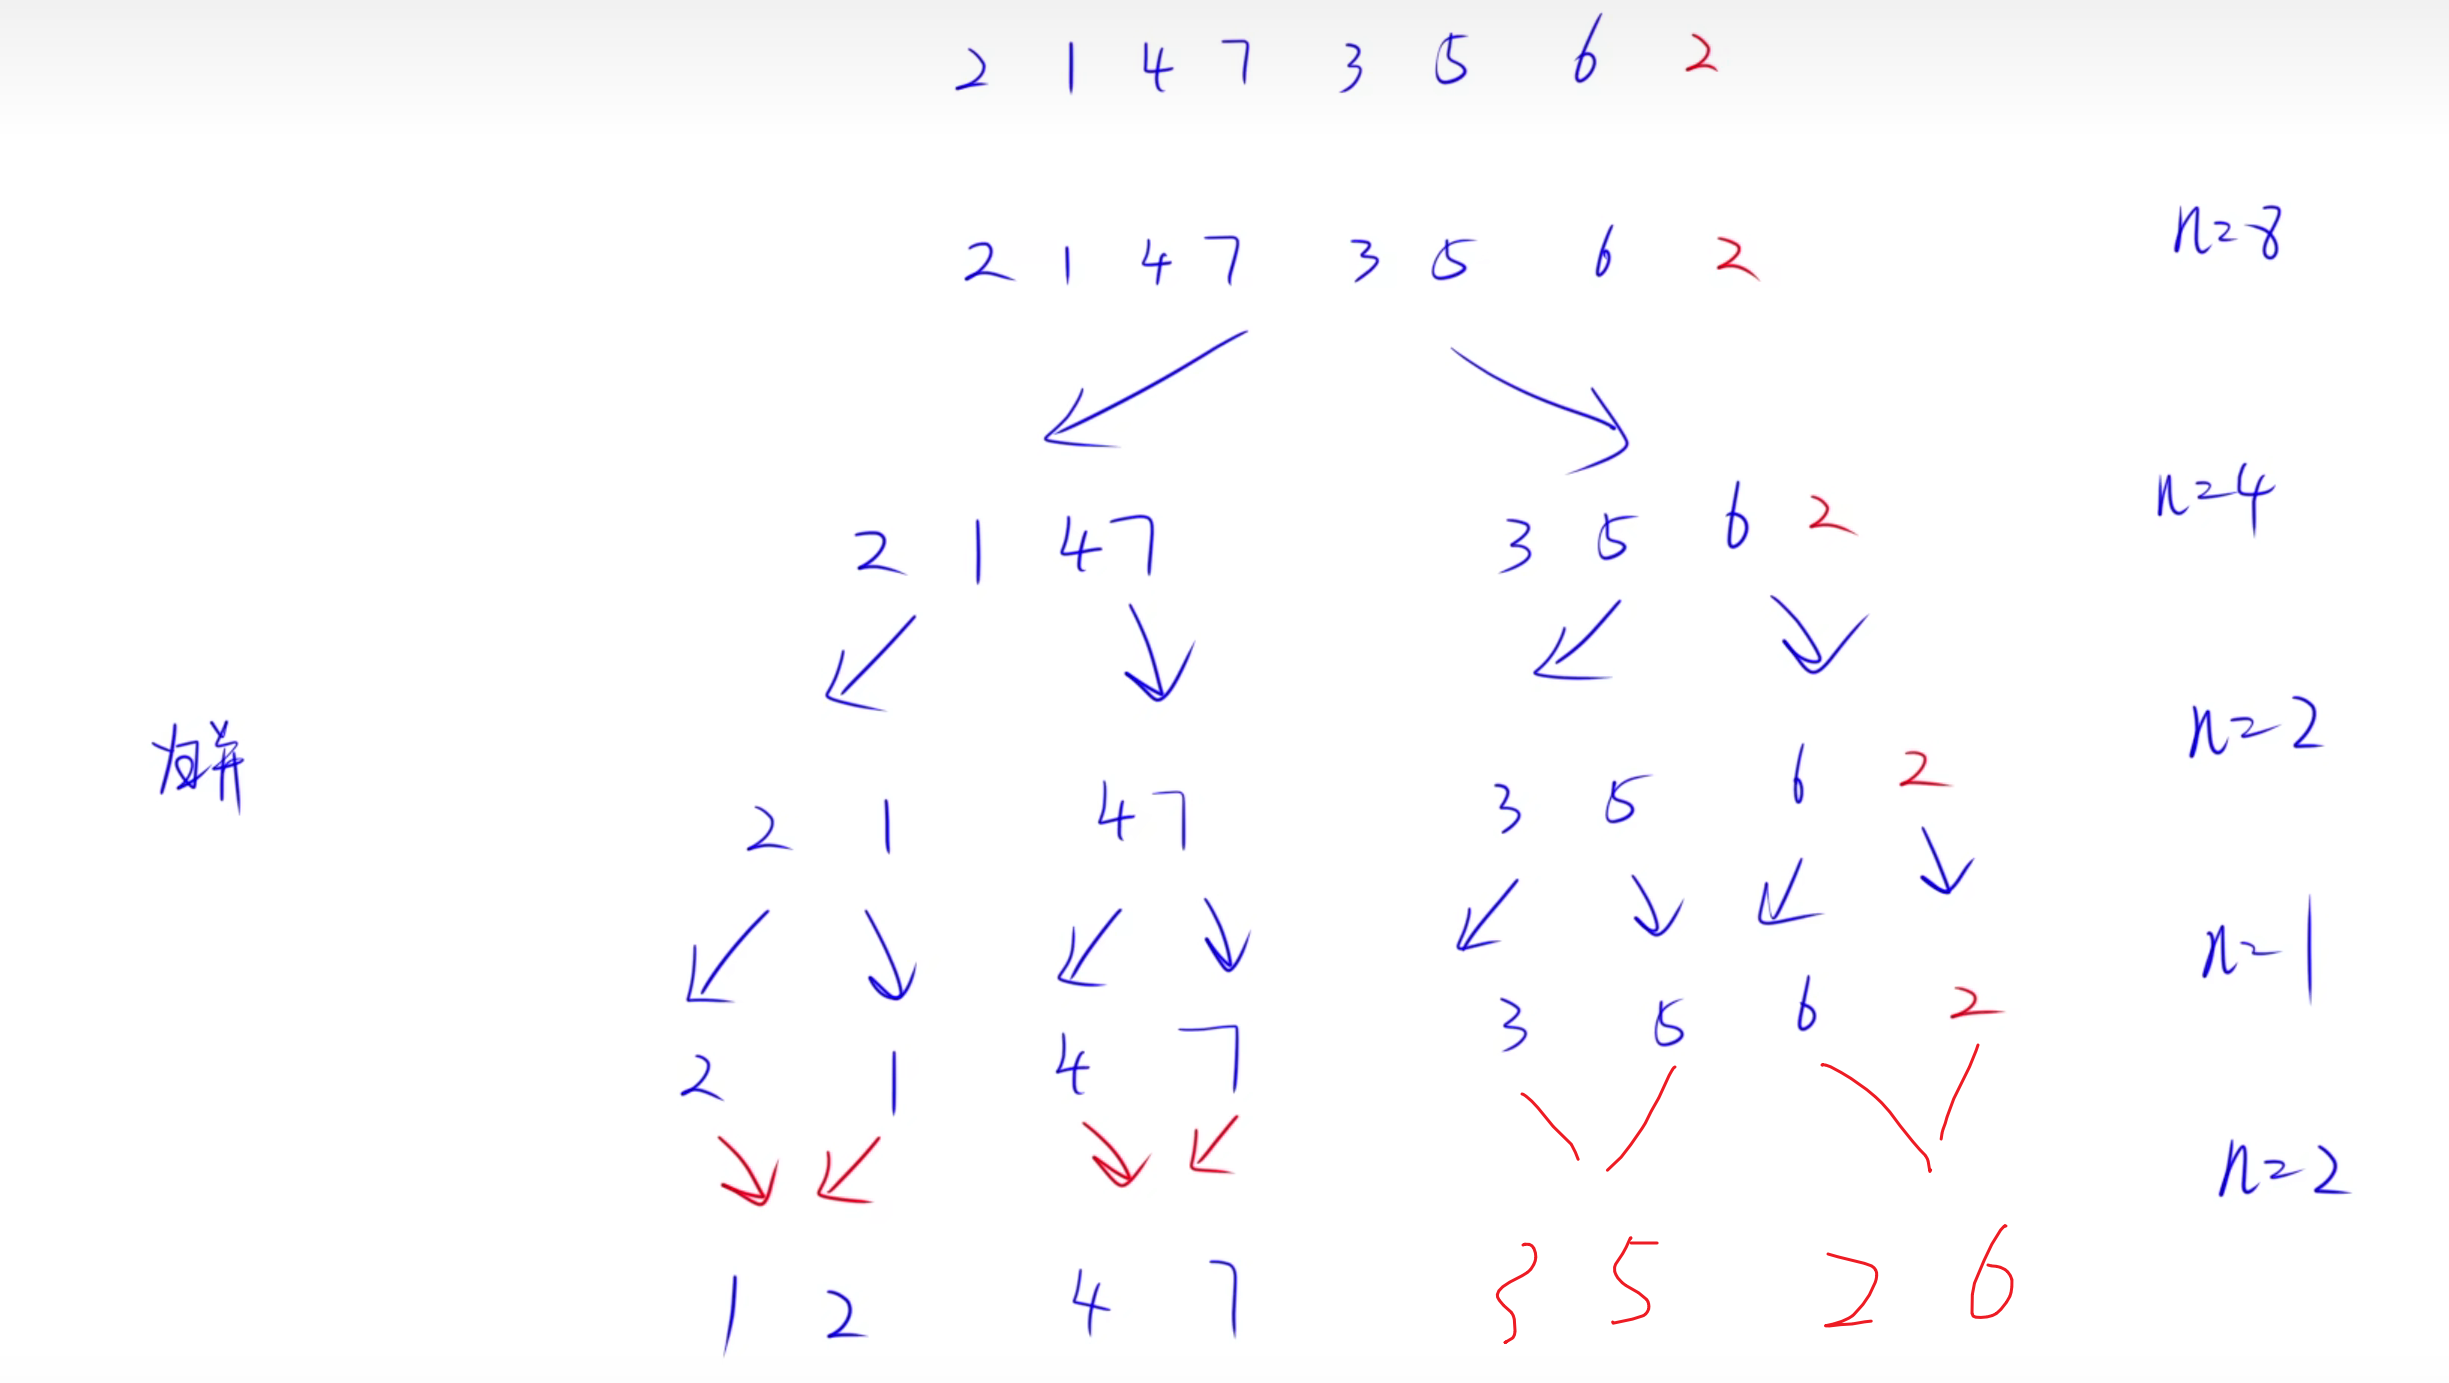 2 1 4 7 3 5 6 2
2 1 4 7 3 5 6 2 n=8
2 1 4 7 3 5 6 2 n=4
归并
2 1 4 7 3 5 6 2 n=2
2 1 4 7 3 5 6 2 n=1
1 2 4 7 3 5 2 6 n=2